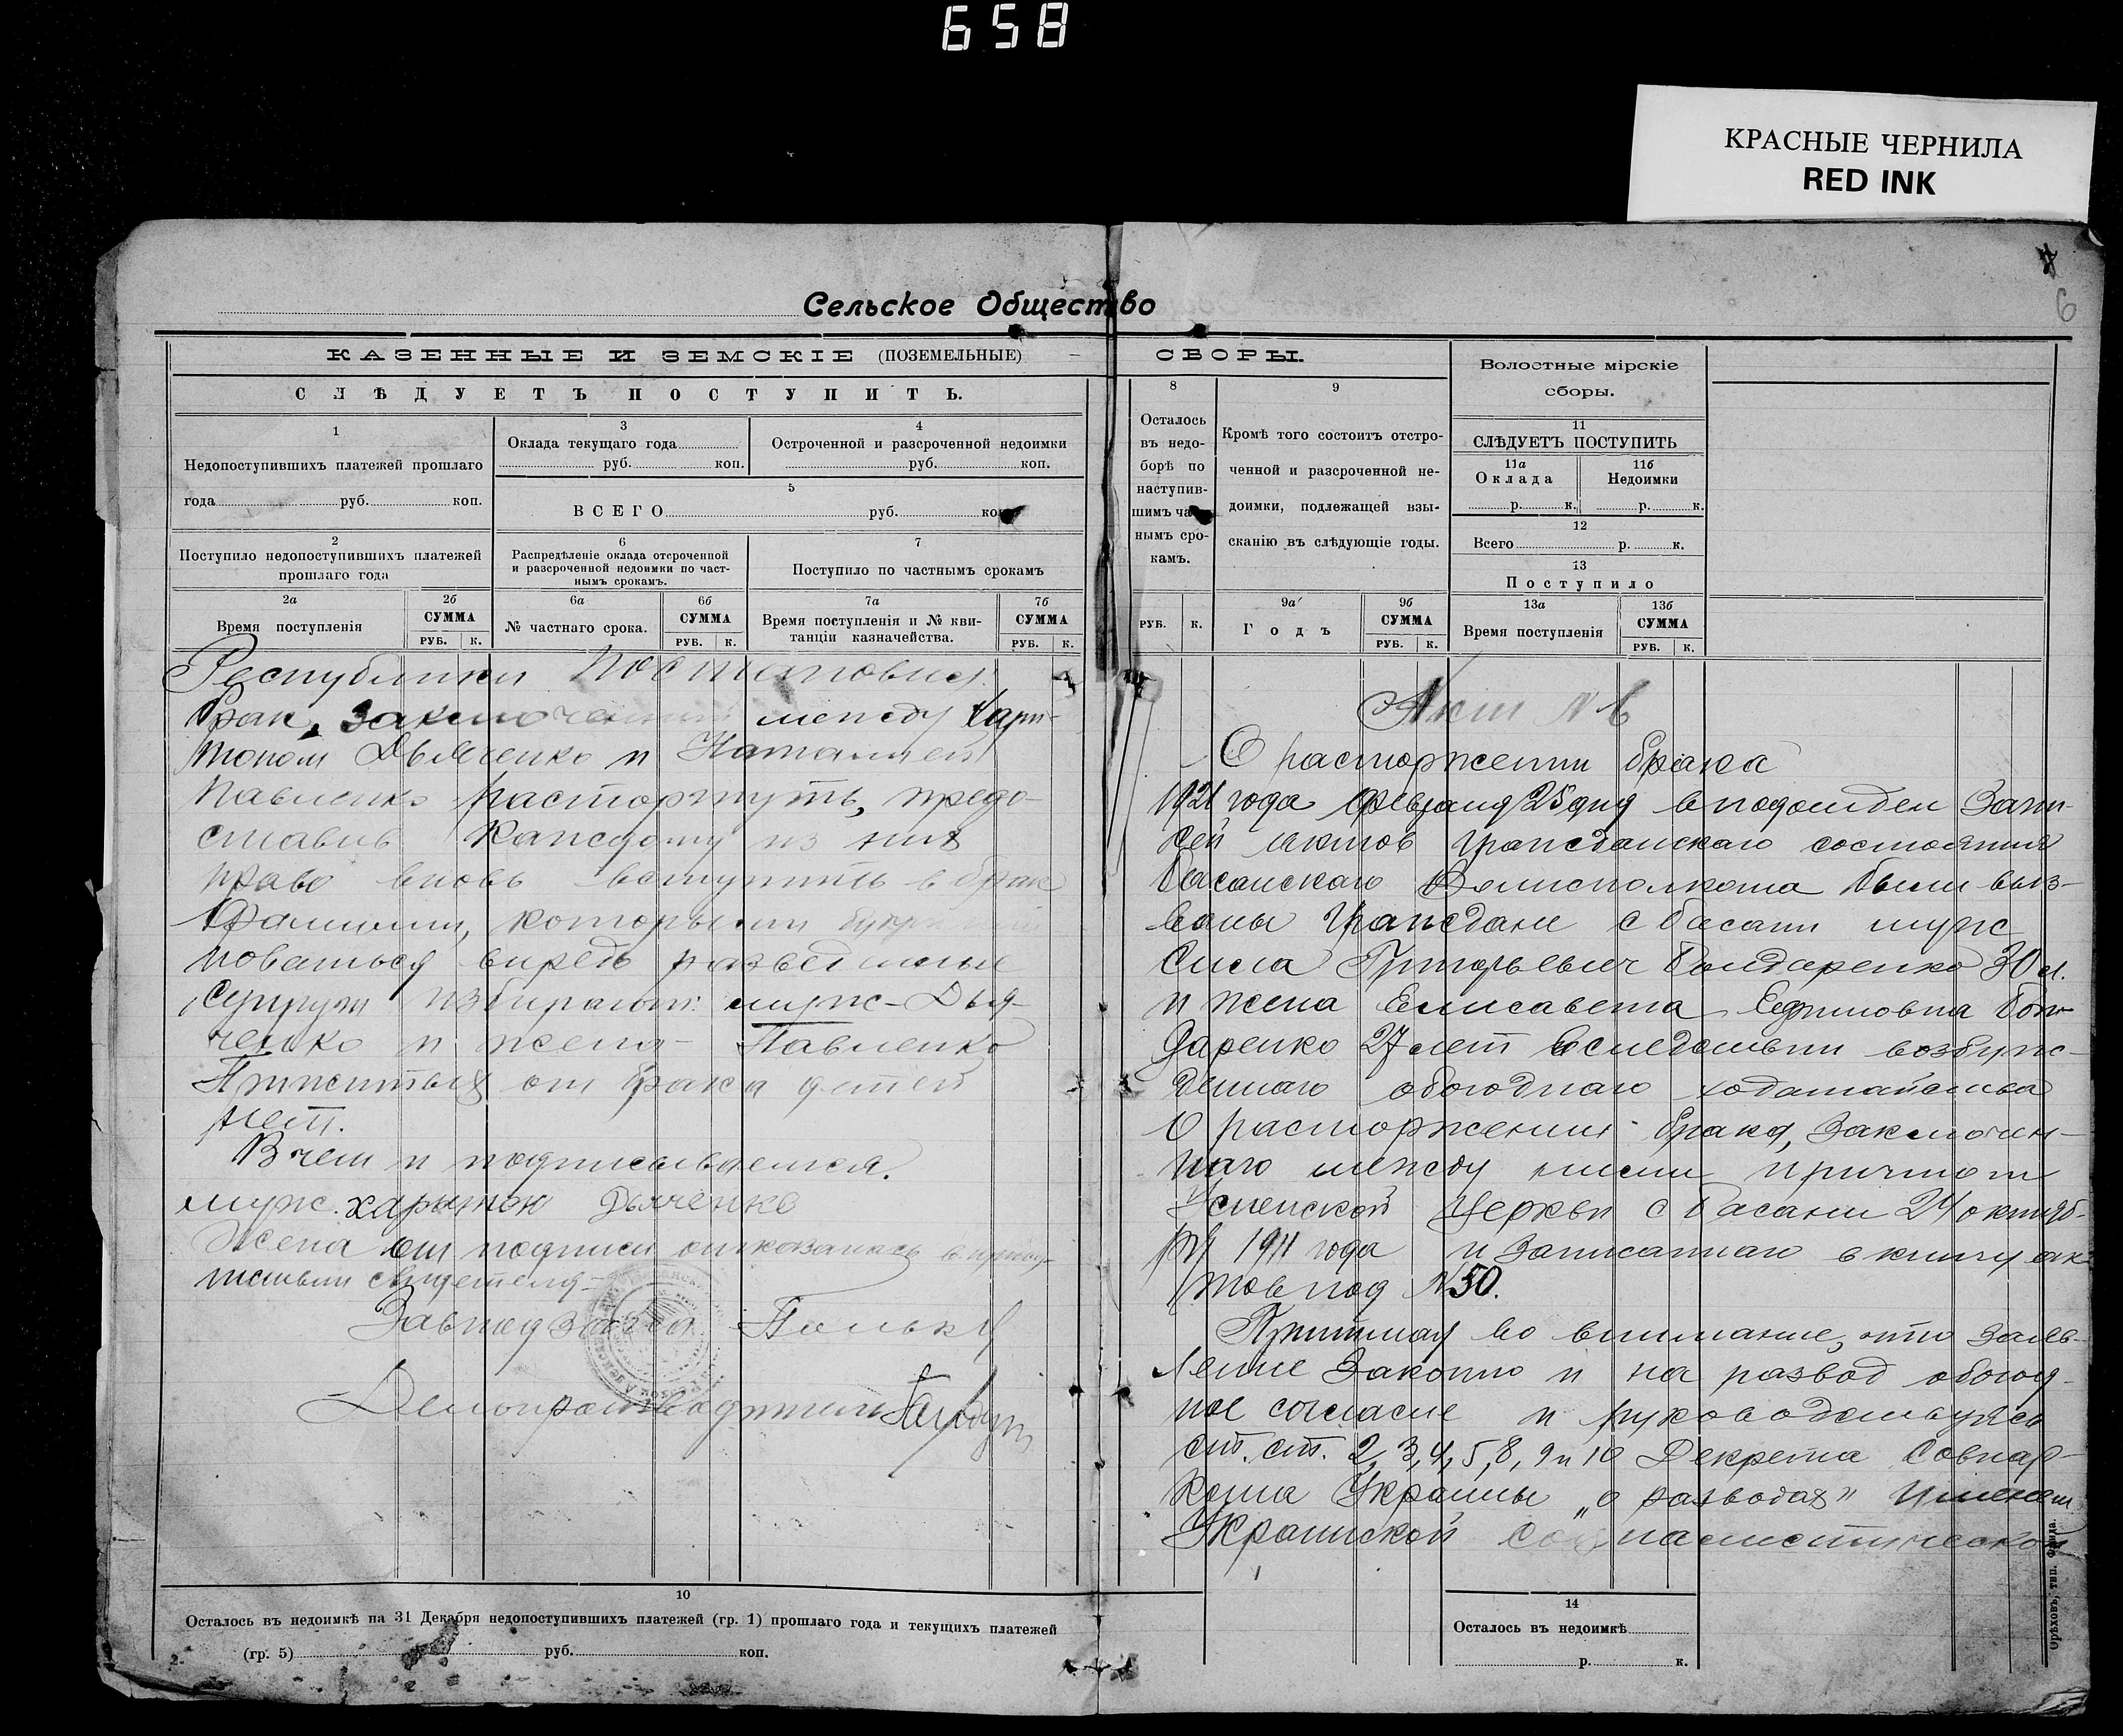 658
КРАСНЫЕ ЧЕРНИЛА
RED INK
7
6
Сельское Общество
КАЗЕННЫЕ И ЗЕМСКІЕ (ПОЗЕМЕЛЬНЫЕ) — СБОРЫ.
СЛѢДУЕТЪ ПОСТУПИТЬ.
1
Недопоступившихъ платежей прошлаго
года руб. коп.
3
Оклада текущаго года
руб. коп.
4
Остроченной и разсроченной недоимки
руб. коп.
5
ВСЕГО руб. коп.
2
Поступило недопоступившихъ платежей
прошлаго года
6
Распредѣленіе оклада отсроченной
и разсроченной недоимки по част-
нымъ срокамъ.
7
Поступило по частнымъ срокамъ
2а
Время поступленія
2б
СУММА
РУБ. К.
6а
№ частнаго срока.
6б
СУММА
РУБ. К.
7а
Время поступленія и № кви-
танціи казначейства.
7б
СУММА
РУБ. К.
Республики постановил
брак, заключенный между Хари-
тоном Дьяченко и Наталией
Павленко расторгнуть, предо-
ставив каждому из них
право вновь вступить в брак
Фамилии, которыми
новаться впредь разведенные
супруги избирают: муж - Дья-
ченко и жена - Павленко
Прижитых от брака детей
нет.
В чем и подписываемся.
муж. харытон Дьяченко
Жена от подписи отказалась в присут-
ствии свидетеля -
Завподотдел
Делопроизводитель
10
Осталось въ недоимкѣ на 31 Декабря недопоступившихъ платежей (гр. 1) прошлаго года и текущихъ платежей
(гр. 5) руб. коп.
8
Осталось
въ недо-
борѣ по
наступив-
шимъ част-
нымъ сро-
камъ.
РУБ. К.
9
Кромѣ того состоитъ отстро-
ченной и разсроченной не-
доимки, подлежащей взы-
сканію въ слѣдующіе годы.
9а
Годъ
9б
СУММА
РУБ. К.
Волостные мірскіе
сборы.
11
СЛѢДУЕТЪ ПОСТУПИТЬ
11а
Оклада
р. к.
11б
Недоимки
р. к.
12
Всего р. к.
13
Поступило
13а
Время поступленія
13б
СУММА
РУБ. К.
Акт № 6
О расторжении брака
1921 года февраля 25 дня в подотдел Запи-
сей актов гражданскаго состояния
Басанскаго Волисполкома были выз-
ваны граждане с Басани муж
Сила Григорьевич Бондаренко 30 л.
и жена Елисавета Ефимовна Бон-
даренко 27 лет вследствии возбуж-
деннаго обоюднаго ходатайства
о расторжении брака, заключен-
наго между ними причтом
Успенской Церкви с Басани 24 октяб-
ря 1911 года и записаннаго в книгу ак-
тов под № 50.
Принимая во внимание, что заяв-
ление законно и на развод обоюд-
ное согласие и руководствуясь
ст. ст. 2, 3, 4, 5, 8, 9 и 10 Декрета Совнар-
кома Украины „о разводах" именем
Украинской социалистической
14
Осталось въ недоимкѣ
р. к.
Орѣховъ, тип.